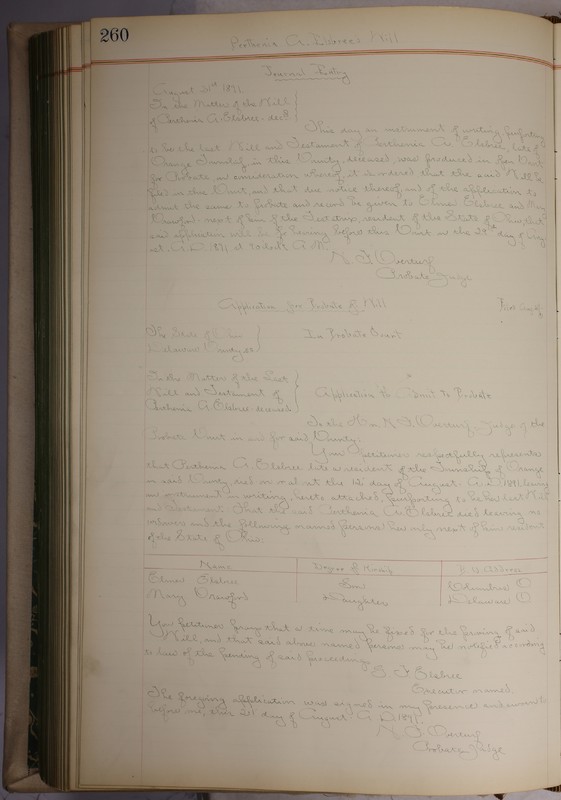 260
Parthenia A. Elsbree's Will
Journal Entry
August 21st 1891
In the Matter of the Will
of Parthenia A. Elsbree - decd
This day an instrument of writing purporting
to be the last Will and Testament of Parthenia A. Elsbree, late of
Orange Township in this County, deceased, was produced in open Court
for Probate in consideration whereof it is ordered that the said Will be
filed in this Court, and that due notice thereof, and of the application to
admit the same to Probate and record be given to Elmer Elsbree and Mary
next of kin of the Testatrix, resident of the State of Ohio, that
said application will be for hearing before this Court on the day of
A.D. 1891 at 10 o'clock A.M.
N. F. Overturf
Probate Judge
Application for Probate of Will
Filed Aug
The State of Ohio
Delaware County, ss
In Probate Court
In the Matter of the Last
Will and Testament of
Parthenia A. Elsbree deceased
Application to Admit to Probate
To the Hon N. F. Overturf, Judge of the
Probate Court in and for said County:
Your Petitioner respectfully represents
that Parthenia A. Elsbree late a resident of the Township of Orange
in said County, died on or about the 12 day of August A.D. 1891, leaving
an instrument in writing, hereto attached, purporting to be her last Will
and Testament. That the said Parthenia A. Elsbree died leaving no
widower and the following named persons her only next of kin resident
of the State of Ohio:
Name Degree of Kinship P.O. Address
Elmer Elsbree Son Columbus O
Mary Daughter Delaware O
Your petitioner prays that a time may be fixed for the proving of said
Will, and that said above named persons may be notified according
to law of the pending of said proceeding.
Elsbree
Executor named.
The foregoing application was signed in my presence and sworn to
before me, this 21 day of August A.D. 1891.
N. F. Overturf
Probate Judge